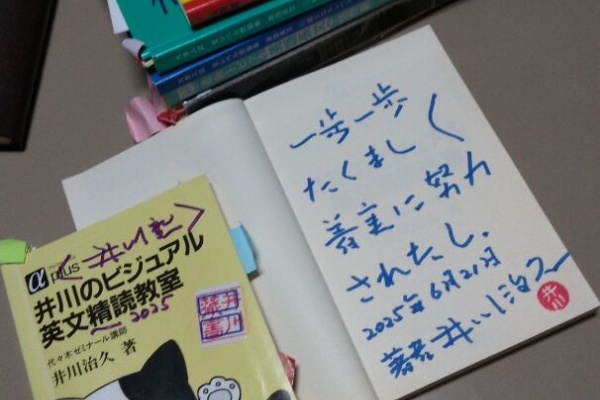 一歩一歩
たくましく
着実に努力
されたし.
2025年6月21日
著者 井川治久
井川
α plus
井川のビジュアル
英文精読教室
2025
代々木ゼミナール講師
井川治久 著
蔵井
書川